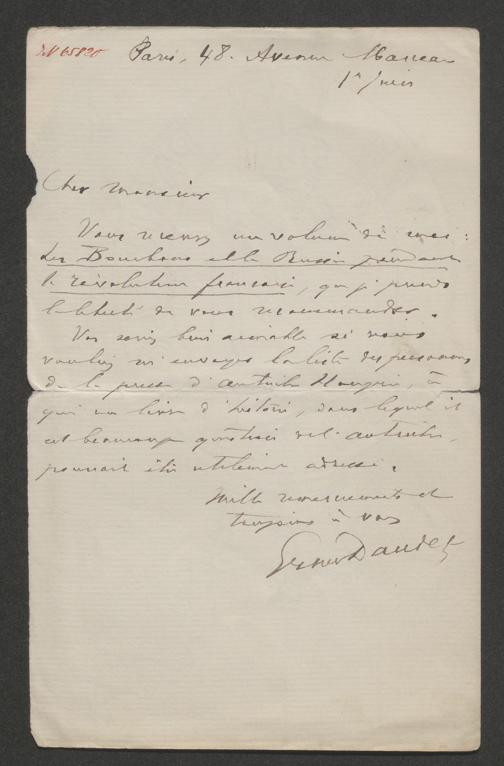 Paris, 48. Avenue Marceau
1er Juin
Cher Monsieur
Vous recevez un volume de moi :
Les Bourbons et la Russie pendant
la révolution française, que je prends
la liberté de vous recommander.
Vous serez bien aimable si vous
vouliez m'envoyer la liste des personnes
de la presse d'Autriche Hongrie, à
qui un livre d'histoire, dans lequel il
est beaucoup question de l'Autriche,
pourrait être utilement adressé.
Mille remerciements et
toujours à vous
Ernest Daudet